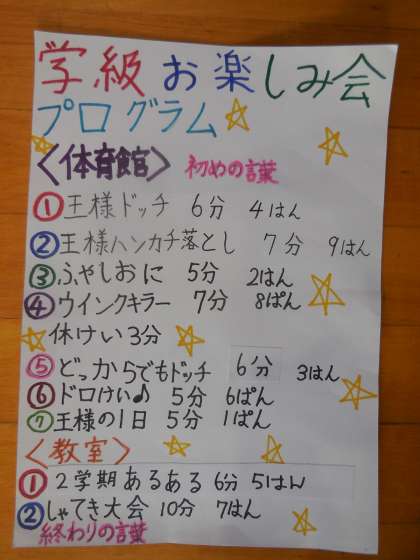 学級お楽しみ会
プログラム
<体育館> 初めの言葉
①王様ドッチ 6分 4はん
②王様ハンカチ落とし 7分 9はん
③ふやしおに 5分 2はん
④ウインクキラー 7分 8ぱん
休けい3分
⑤どっからでもドッチ 6分 3はん
⑥ドロけい♪ 5分 6ぱん
⑦王様の1日 5分 1ぱん
<教室>
①2学期あるある 6分 5はん
②しゃてき大会 10分 7はん
終わりの言葉